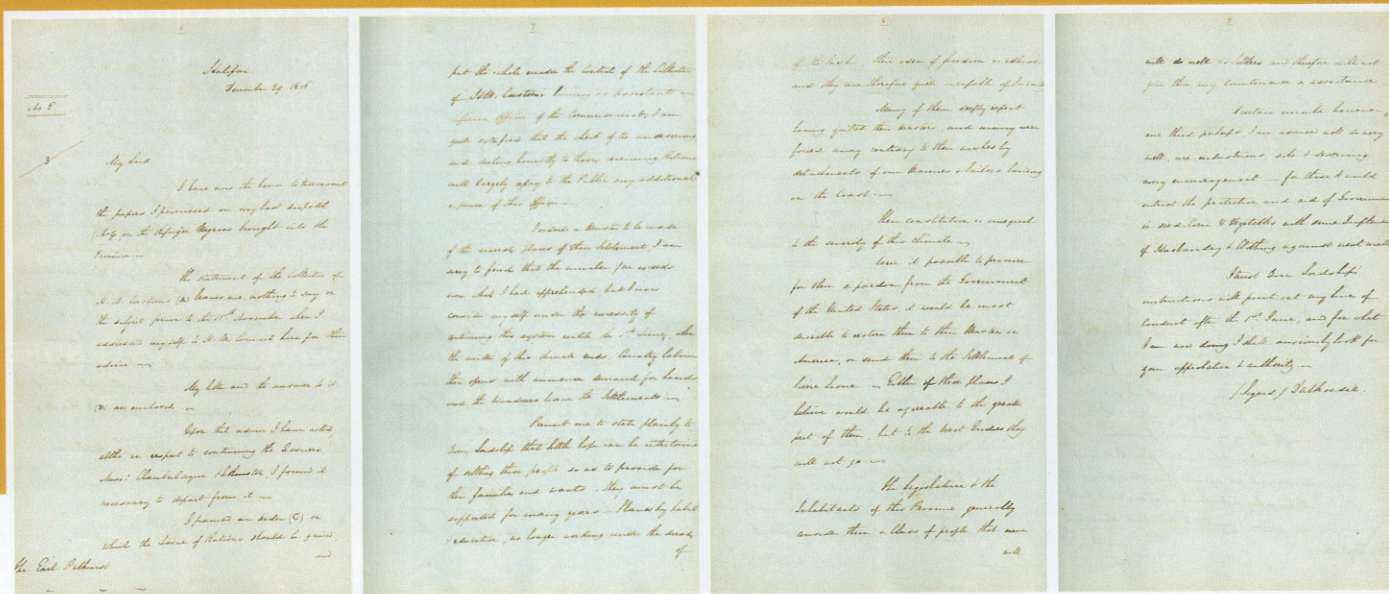 Halifax
December 29 1816
No 5
My Lord
I have now the honor to transmit
the papers I promised in my last dispatch
only on the Refugee Negroes brought into the
Province
The statement of the Collector of
H. M. Customs (A) leaves me nothing to say on
the subject prior to the November when I
addressed myself to H. M. Council here for their
advice
My letter and the answer to it
(B) are enclosed
Upon that advice I have acted,
altho in respect to continuing the Issuers
Messrs Chamberlayne & I found it
necessary to depart from it
I framed an order (C) on
which the Issue of Rations should be guided,
and
The Earl Bathurst
put the whole under the Control of the Collector
of H.M. Customs having as assistant an
inferior Officer of the Commissariat, I am
quite satisfied that the check of the undeserving
and acting honestly to those receiving Rations
will largely repay to the Public any additional
expence of this Officer
I ordered a Muster to be made
of the several places of their Settlement, I am
sorry to find that the number far exceeds
now what I had apprehended, but I now
consider myself under the necessity of
continuing this system until the 1st June. Then
the winter of this climate ends, Country labour
then opens with immense demand for hands,
and the wanderers leave the Settlements
Permit me to state plainly to
Your Lordship that little hope can be entertained
of settling these people so as to provide for
their families and wants – they must be
supported for many years – Slaves by habit
& education, no longer working under the dread
of
of the lash their idea of freedom is idleness
and they are therefore quite incapable of Industry
Many of them deeply regret
having quitted their masters, and many were
forced away contrary to their wishes by
detachments of our Marines & Sailors landing
on the Coast
Their constitution is unequal
to the severity of this climate
Were it possible to procure
for them a pardon from the Government
of the United States it would be most
desirable to restore them to their Masters in
America, or send them to the Settlement of
Sierra Leone – Either of these places I
believe would be agreeable to the greater
part of them, but to the West Indies they
will not go
The Legislature & the
Inhabitants of this Province generally
consider them a Class of people that never
will
will do well as Settlers and therefore will not
give them any countenance or assistance
A certain number however,
one third perhaps, I am assured will do very
well, are industrious, sober & deserving
every encouragement – for these I would
intreat the protection and aid of Government
in seed Corn & Vegetables with some Implements
of Husbandry & Clothing against next winter
I trust Your Lordship's
instructions will point out my line of
conduct after the 1st June, and for what
I am now doing I shall anxiously look for
your approbation & authority
(Signed) Dalhousie.